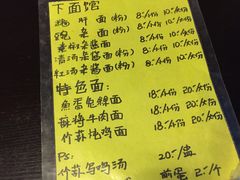 下面馆
肥肝面(粉) 8元/小份 10元/份
豌杂面(粉) 8元/小份 10元/份
素椒杂酱面 8元/小份 10元/份
清汤杂酱面(粉) 8元/小份 10元/份
红汤杂酱面(粉) 8元/小份 10元/份
特色面:
鱼蛋龟鳞面 18元/份 20元/份
麻辣牛肉面 18元/份 20元/份
竹荪炖鸡面 18元/份 20元/份
PS:
竹荪乌鸡汤 20元/盅
煎蛋 2元/个